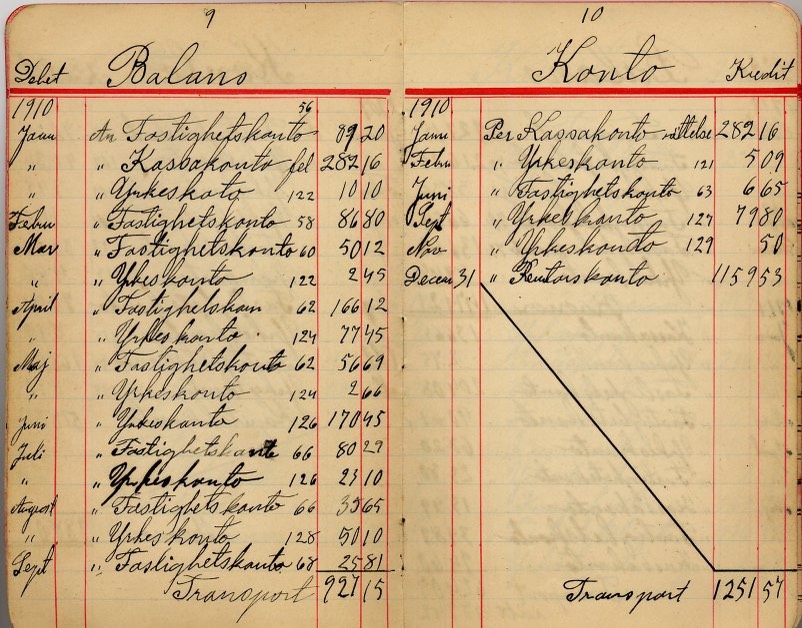 9
Debet Balans
1910
Janu An Fastighetskonto 56 89 20
„ „ Kassakonto fel 282 16
„ „ Yrkeskoto 122 10 10
Febru „ Fastighetskonto 58 86 80
Mar „ Fastighetskonto 60 50 12
„ „ Yrkeskonto 122 2 45
April „ Fastighetskon 62 166 12
„ „ Yrkeskonto 124 77 45
Maj „ Fastighetskonto 62 56 69
„ „ Yrkeskonto 124 2 66
Juni „ Yrkeskonto 126 170 45
Juli „ Fastighetskonto 66 80 29
„ „ Yrkeskonto 126 23 10
August „ Fastighetskonto 66 35 65
„ „ Yrkeskonto 128 50 10
Sept „ Fastighetskonto 68 25 81
Transport 927 15
10
Konto Kredit
1910
Janu Per Kassakonto rättelse 282 16
Febru „ Yrkeskonto 121 5 09
Juni „ Fastighetskonto 63 6 65
Sept „ Yrkeskonto 127 79 80
Nov „ Yrkeskonto 129 50
Decem 31 „ konto 1159 53
Transport 1251 57